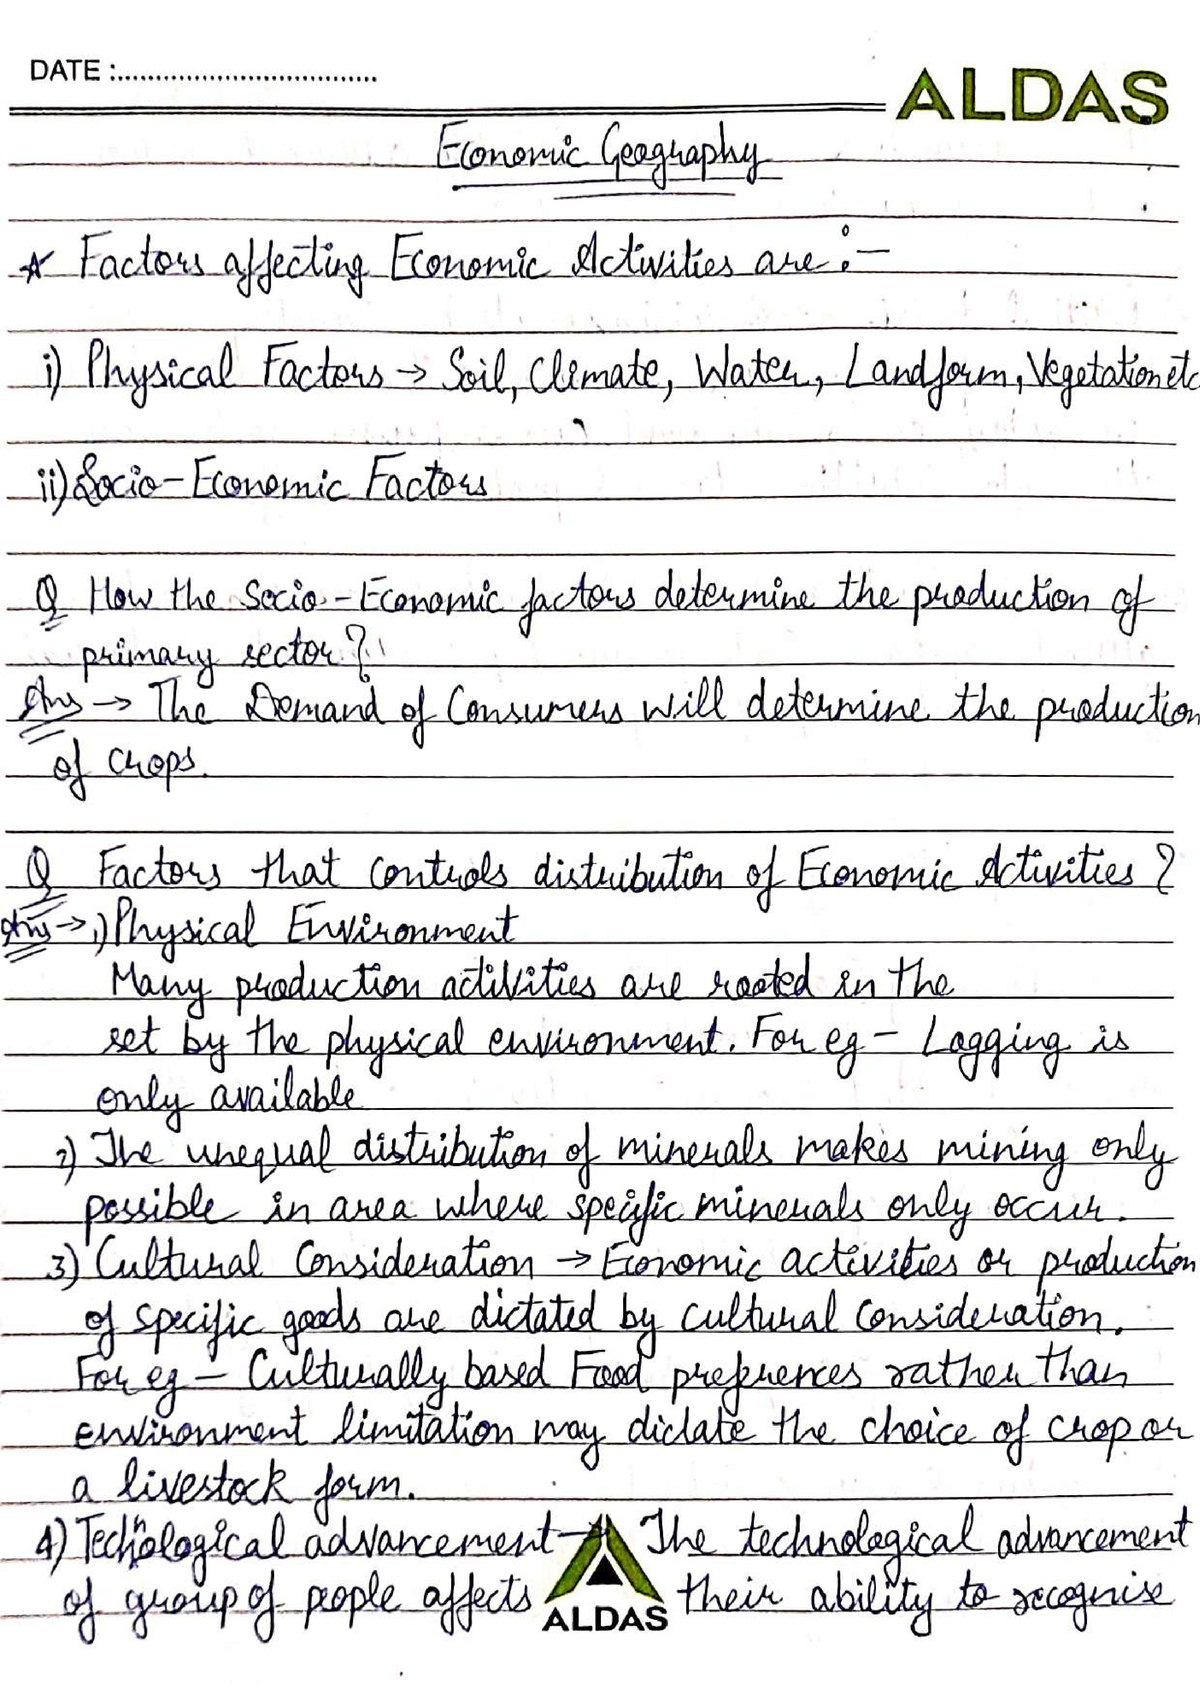 DATE :.................................
ALDAS
Economic Geography
☆ Factors affecting Economic Activities are :-
i) Physical Factors → Soil, Climate, Water, Landform, Vegetation etc
ii) Socio-Economic Factors
Q How the Socio-Economic factors determine the production of
primary sector?
Ans → The Demand of Consumers will determine the production
of crops.
Q Factors that controls distribution of Economic Activities ?
Ans → 1) Physical Environment
Many production activities are rooted in the
set by the physical environment. For eg - Logging is
only available
2) The unequal distribution of minerals makes mining only
possible in area where specific minerals only occur.
3) Cultural Consideration → Economic activities or production
of specific goods are dictated by cultural consideration.
For eg - Culturally based Food prefrences rather than
environment limitation may dictate the choice of crop or
a livestock form.
4) Technological advancement → The technological advancement
of group of people affects their ability to recognise
ALDAS